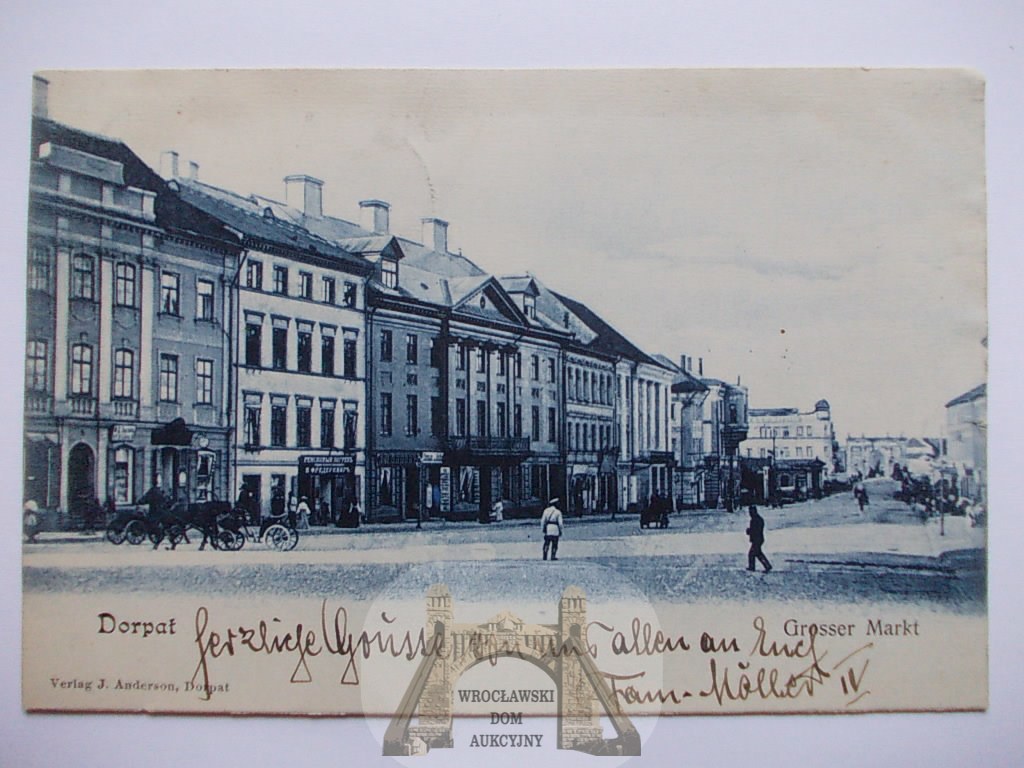 РЕНСКОВЫЙ ПОГРЕБЪ
Dorpat
Grosser Markt
herzliche Grüsse von uns allen an Euch
Fam. Möller IV
Verlag J. Anderson, Dorpat
WROCŁAWSKI
DOM
AUKCYJNY